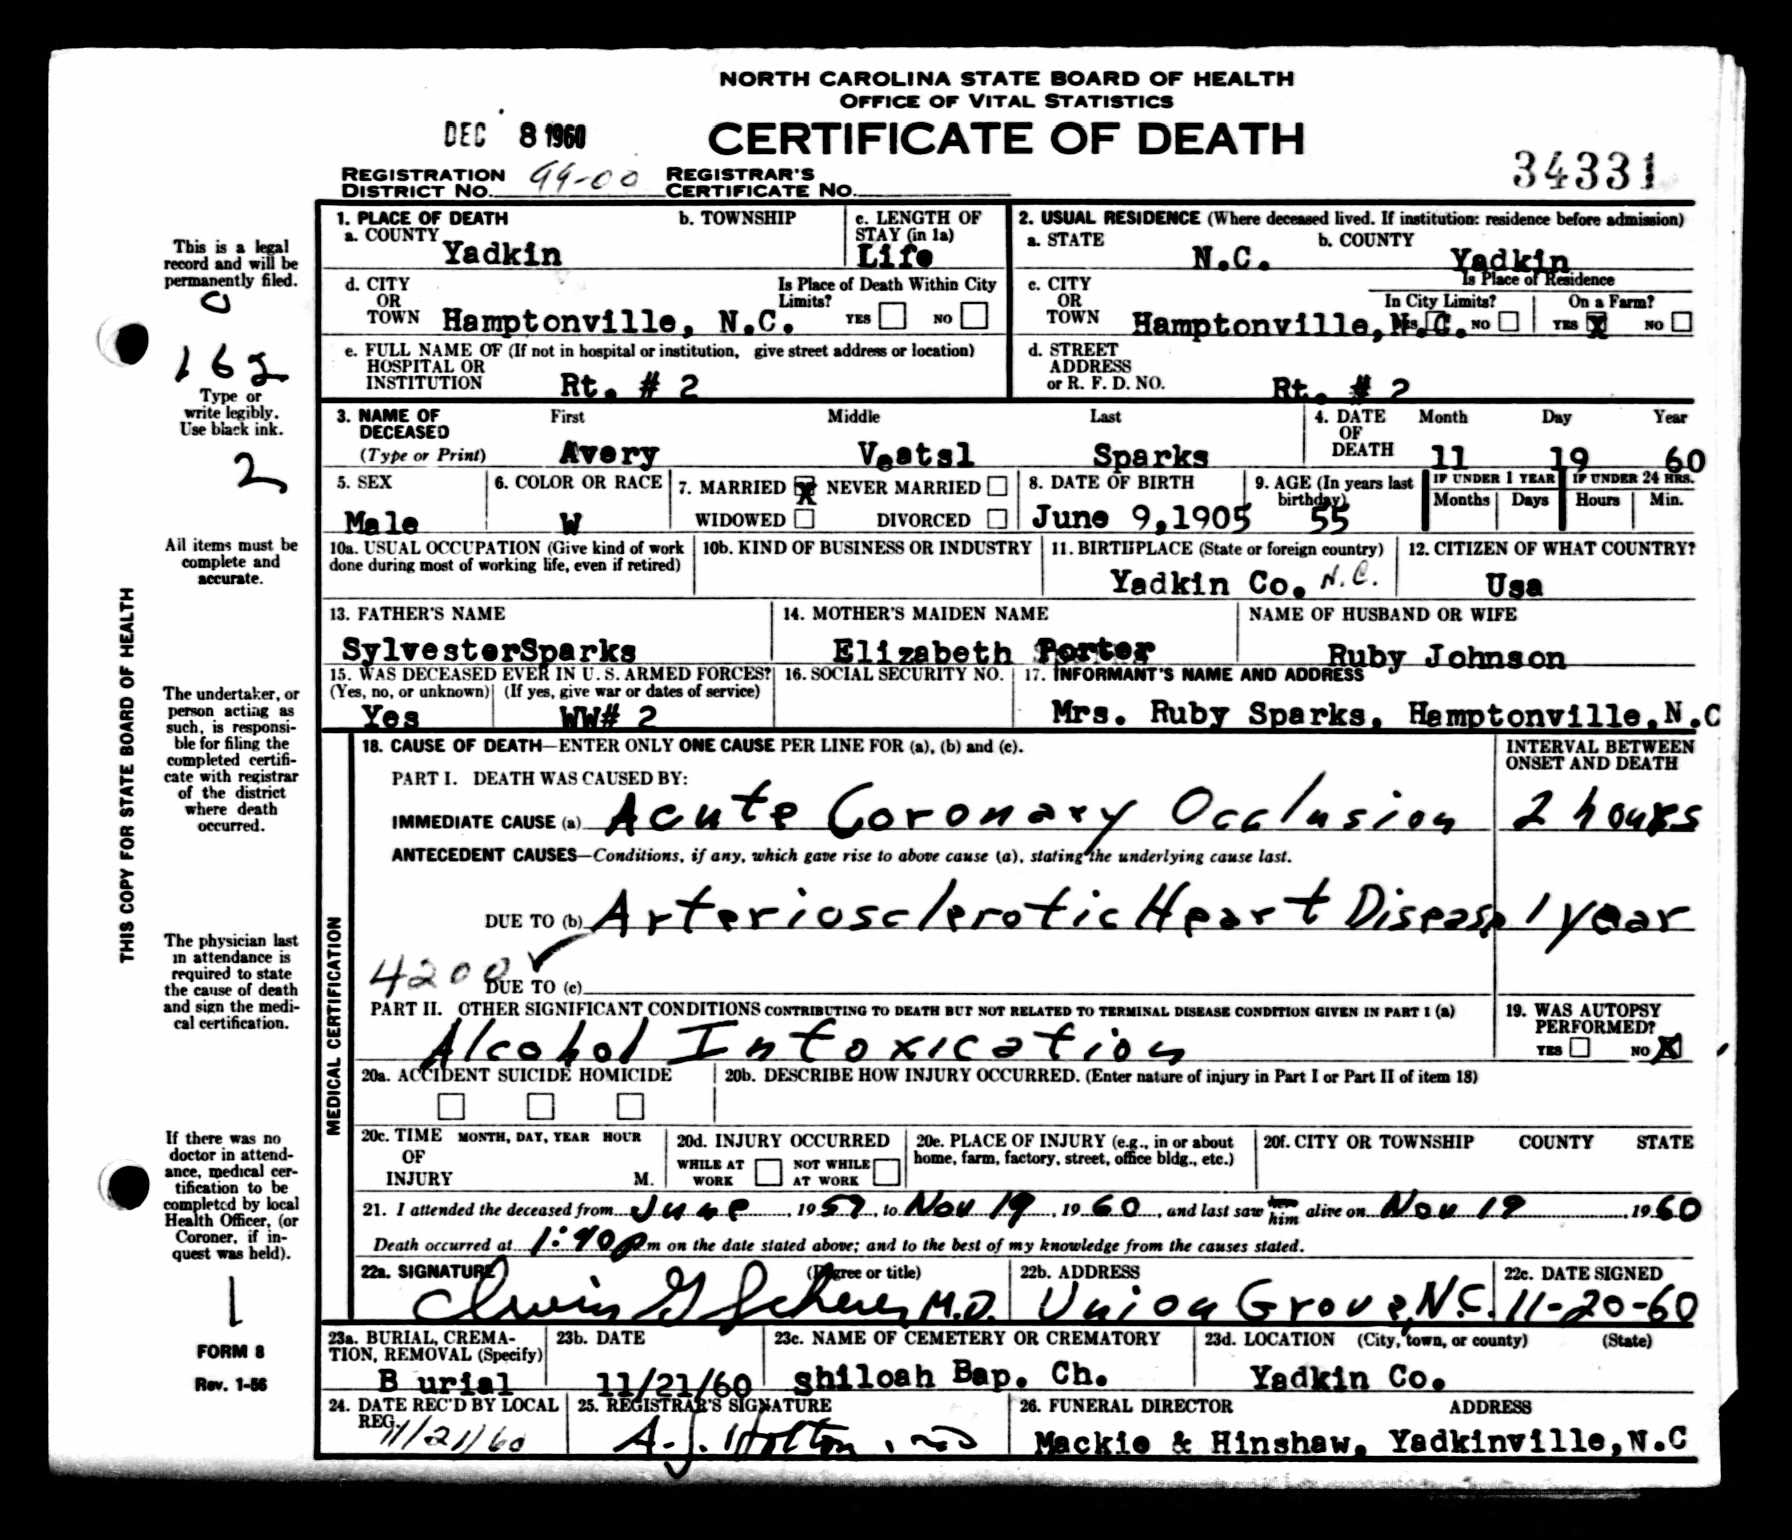 NORTH CAROLINA STATE BOARD OF HEALTH
OFFICE OF VITAL STATISTICS
DEC 8 1960
CERTIFICATE OF DEATH
34331
REGISTRATION DISTRICT NO. 99-00 REGISTRAR'S CERTIFICATE NO.
This is a legal record and will be permanently filed.
162
Type or write legibly. Use black ink.
2
All items must be complete and accurate.
THIS COPY FOR STATE BOARD OF HEALTH
The undertaker, or person acting as such, is responsible for filing the completed certificate with registrar of the district where death occurred.
The physician last in attendance is required to state the cause of death and sign the medical certification.
If there was no doctor in attendance, medical certification to be completed by local Health Officer, (or Coroner, if inquest was held).
1
FORM 8
Rev. 1-56
1. PLACE OF DEATH
a. COUNTY Yadkin
b. TOWNSHIP
c. LENGTH OF STAY (in 1a) Life
2. USUAL RESIDENCE (Where deceased lived. If institution: residence before admission)
a. STATE N.C. b. COUNTY Yadkin
d. CITY OR TOWN Hamptonville, N.C.
Is Place of Death Within City Limits? YES NO
c. CITY OR TOWN Hamptonville, N.C.
Is Place of Residence
In City Limits? YES NO
On a Farm? YES X NO
e. FULL NAME OF (If not in hospital or institution, give street address or location)
HOSPITAL OR INSTITUTION Rt. # 2
d. STREET ADDRESS or R. F. D. NO. Rt. # 2
3. NAME OF DECEASED (Type or Print)
First Middle Last
Avery Vestsl Sparks
4. DATE OF DEATH Month Day Year
11 19 60
5. SEX Male
6. COLOR OR RACE W
7. MARRIED X NEVER MARRIED
WIDOWED DIVORCED
8. DATE OF BIRTH June 9,1905
9. AGE (In years last birthday) 55
IF UNDER 1 YEAR Months Days
IF UNDER 24 HRS. Hours Min.
10a. USUAL OCCUPATION (Give kind of work done during most of working life, even if retired)
10b. KIND OF BUSINESS OR INDUSTRY
11. BIRTHPLACE (State or foreign country) Yadkin Co. N.C.
12. CITIZEN OF WHAT COUNTRY? Usa
13. FATHER'S NAME SylvesterSparks
14. MOTHER'S MAIDEN NAME Elizabeth Porter
NAME OF HUSBAND OR WIFE Ruby Johnson
15. WAS DECEASED EVER IN U. S. ARMED FORCES?
(Yes, no, or unknown) (If yes, give war or dates of service)
Yes WW# 2
16. SOCIAL SECURITY NO.
17. INFORMANT'S NAME AND ADDRESS
Mrs. Ruby Sparks, Hamptonville,N.C
MEDICAL CERTIFICATION
18. CAUSE OF DEATH—ENTER ONLY ONE CAUSE PER LINE FOR (a), (b) and (c).
INTERVAL BETWEEN ONSET AND DEATH
PART I. DEATH WAS CAUSED BY:
IMMEDIATE CAUSE (a) Acute Coronary Occlusion 2 hours
ANTECEDENT CAUSES—Conditions, if any, which gave rise to above cause (a), stating the underlying cause last.
DUE TO (b) Arteriosclerotic Heart Disease 1 year
4200
DUE TO (c)
PART II. OTHER SIGNIFICANT CONDITIONS CONTRIBUTING TO DEATH BUT NOT RELATED TO TERMINAL DISEASE CONDITION GIVEN IN PART I (a)
Alcohol Intoxication
19. WAS AUTOPSY PERFORMED?
YES NO X
20a. ACCIDENT SUICIDE HOMICIDE
20b. DESCRIBE HOW INJURY OCCURRED. (Enter nature of injury in Part I or Part II of item 18)
20c. TIME OF INJURY MONTH, DAY, YEAR HOUR M.
20d. INJURY OCCURRED
WHILE AT WORK NOT WHILE AT WORK
20e. PLACE OF INJURY (e.g., in or about home, farm, factory, street, office bldg., etc.)
20f. CITY OR TOWNSHIP COUNTY STATE
21. I attended the deceased from June, 1959, to Nov 19, 1960, and last saw him alive on Nov 19 1960
Death occurred at 1:40 p m on the date stated above; and to the best of my knowledge from the causes stated.
22a. SIGNATURE (Degree or title)
M.D.
22b. ADDRESS Union Grove, N.C.
22c. DATE SIGNED 11-20-60
23a. BURIAL, CREMATION, REMOVAL (Specify) B urial
23b. DATE 11/21/60
23c. NAME OF CEMETERY OR CREMATORY Shiloah Bap. Ch.
23d. LOCATION (City, town, or county) (State) Yadkin Co.
24. DATE REC'D BY LOCAL REG. 11/21/60
25. REGISTRAR'S SIGNATURE A. J. Holton, MD
26. FUNERAL DIRECTOR ADDRESS
Mackie & Hinshaw, Yadkinville,N.C